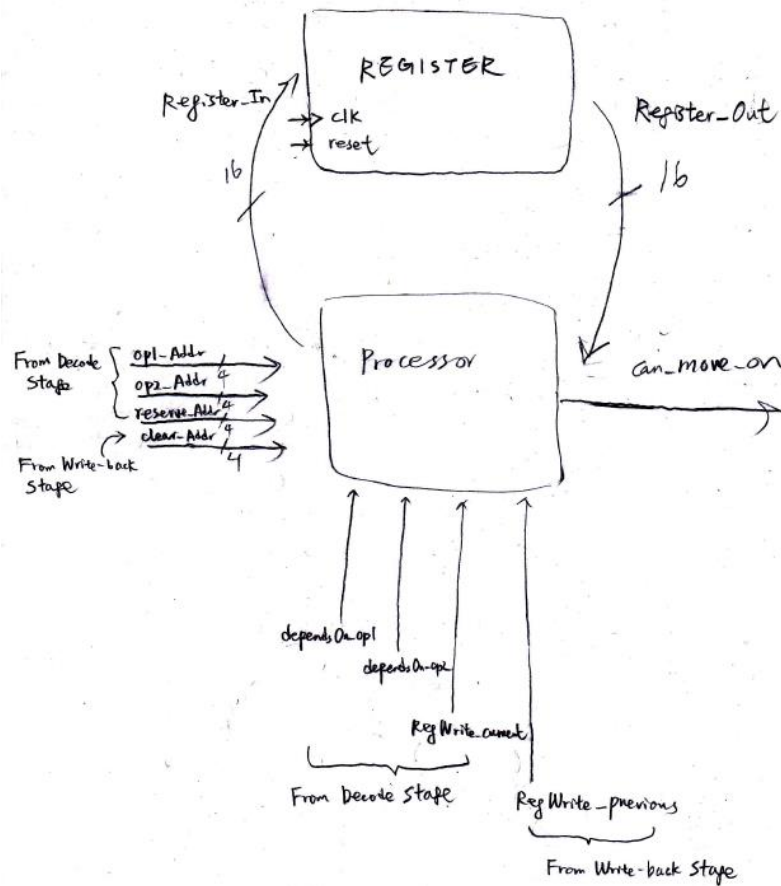 REGISTER
Register_In
clk
reset
Register_Out
16
16
Processor
can_move_on
From Decode
Stage
op1_Addr
4
op2_Addr
4
reserve_Addr
4
clear_Addr
4
From Write-back
Stage
dependsOn_op1
dependsOn_op2
RegWrite_current
From Decode Stage
RegWrite_previous
From Write-back Stage